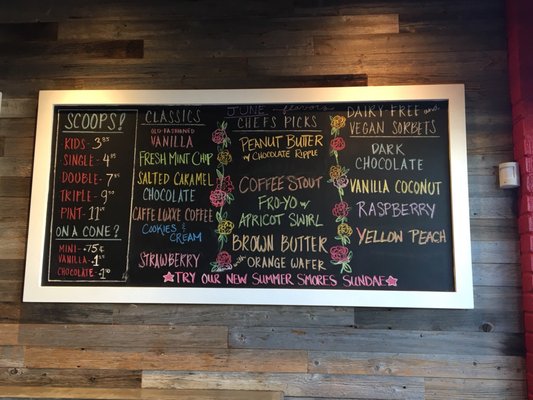 JUNE flavors
SCOOPS!
KIDS- 3.5
SINGLE- 4.85
DOUBLE- 7
TRIPLE- 9
PINT- 11
ON A CONE?
MINI - .75¢
VANILLA - 1
CHOCOLATE- 1
CLASSICS
OLD-FASHIONED
VANILLA
FRESH MINT CHIP
SALTED CARAMEL
CHOCOLATE
CAFFE LUXXE COFFEE
COOKIES &
CREAM
STRAWBERRY
CHEFS PICKS
PEANUT BUTTER
W/ CHOCOLATE RIPPLE
COFFEE STOUT
FRO-YO W/
APRICOT SWIRL
BROWN BUTTER
WITH ORANGE WAFER
DAIRY-FREE and
VEGAN SORBETS
DARK
CHOCOLATE
VANILLA COCONUT
RASPBERRY
YELLOW PEACH
★TRY OUR NEW SUMMER SMORES SUNDAE★